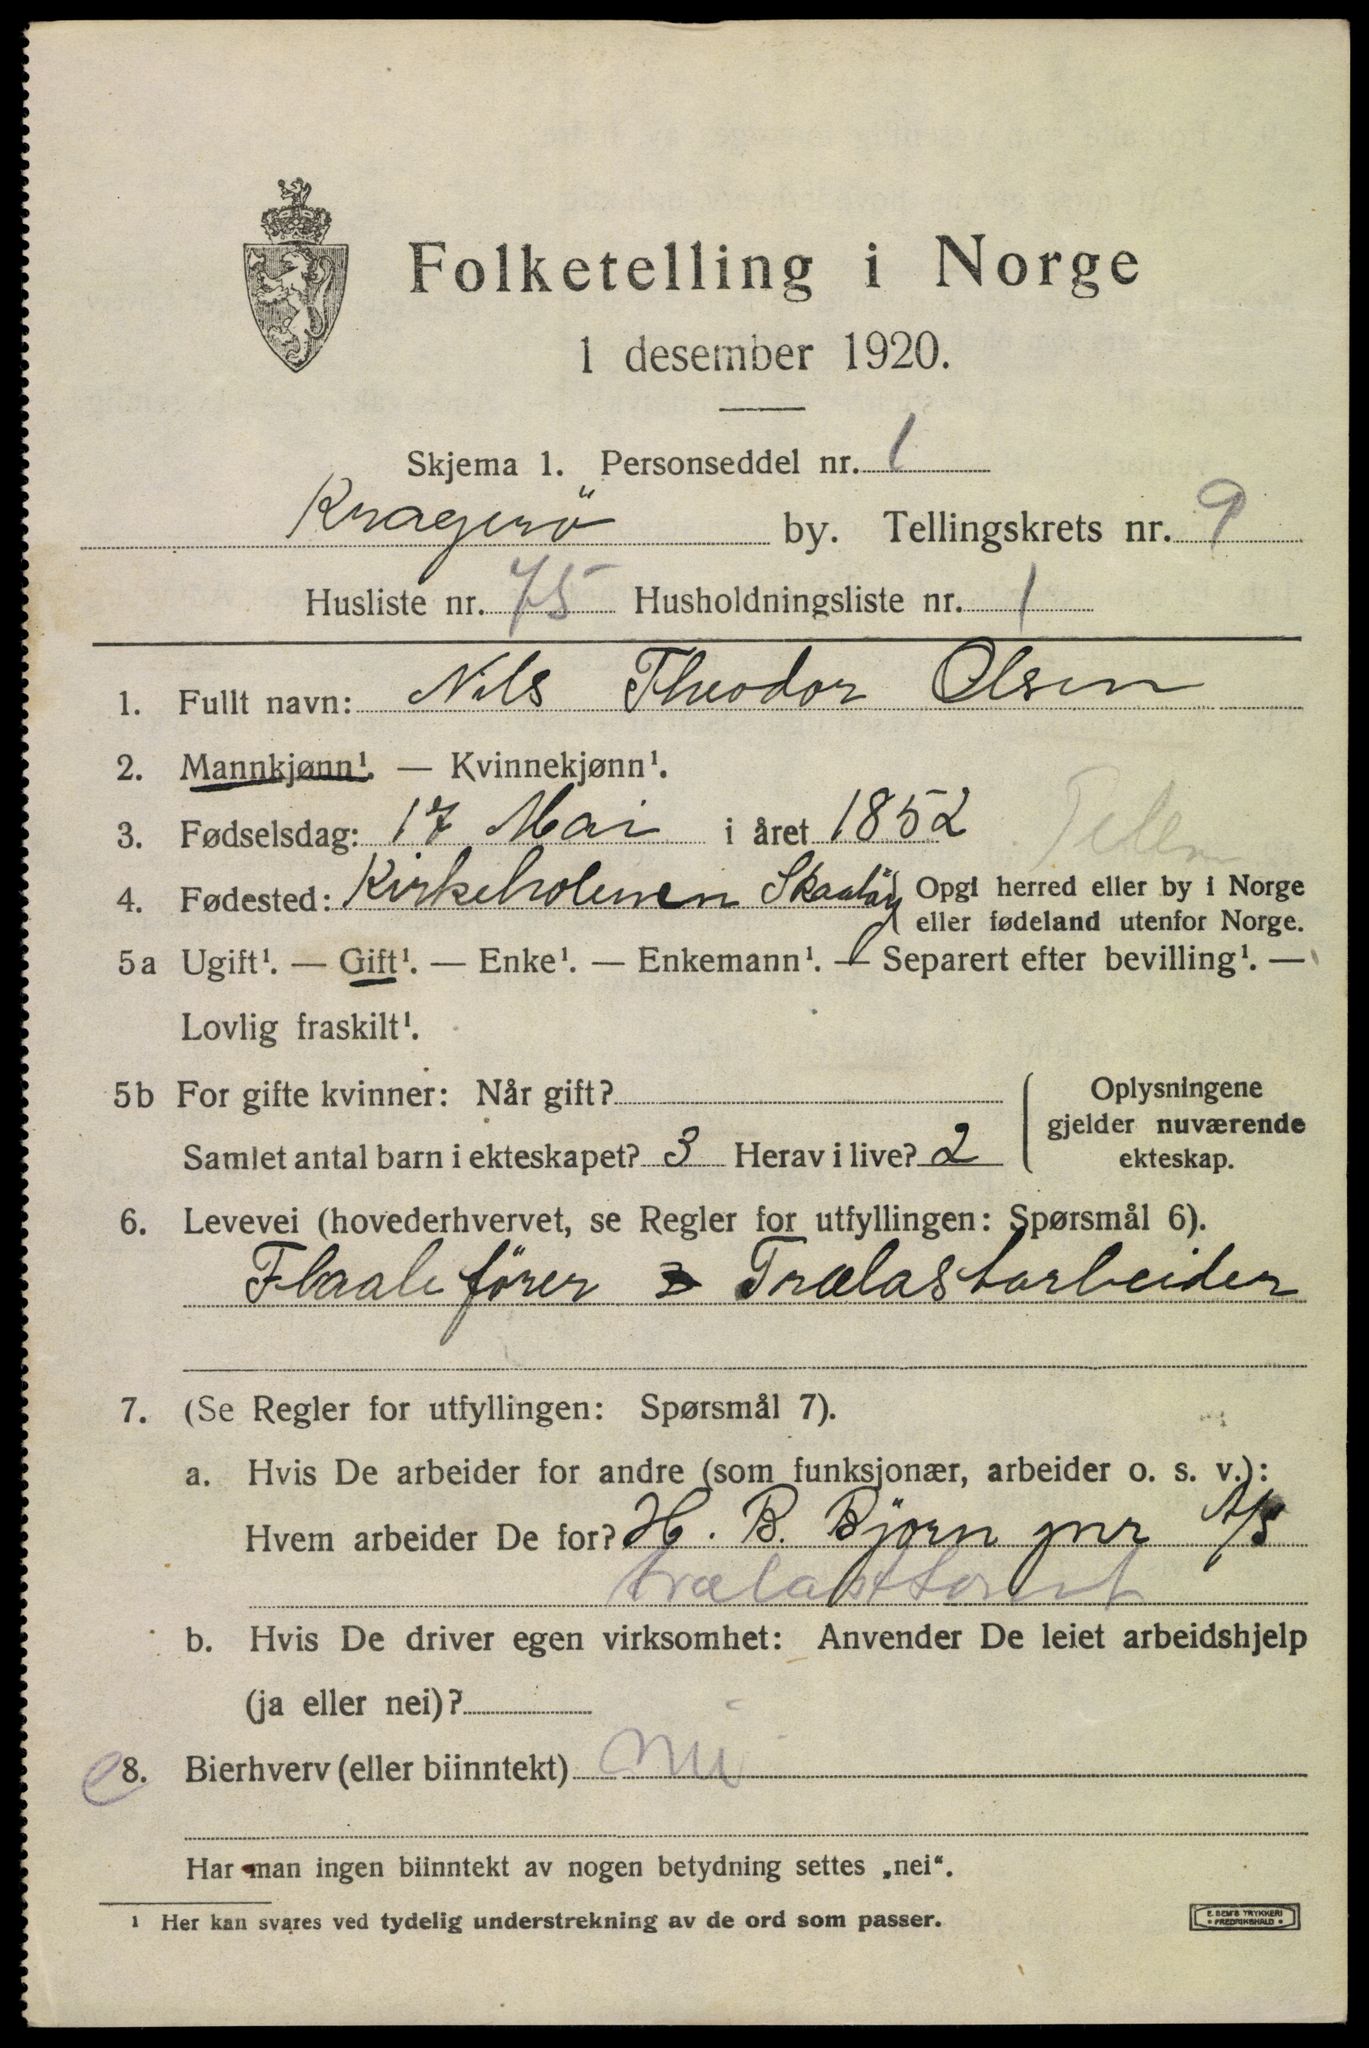 Folketelling i Norge
1 desember 1920.
Skjema 1. Personseddel nr. 1
Kragerö by. Tellingskrets nr. 9
Husliste nr. 75 Husholdningsliste nr. 1
1. Fullt navn: Nils Theodor Olsen
2. Mannkjønn¹. — Kvinnekjønn¹.
3. Fødselsdag: 17 Mai i året 1852
4. Fødested: Kirkeholmen Skaatöy Opgi herred eller by i Norge
eller fødeland utenfor Norge.
5a Ugift¹. — Gift¹. — Enke¹. — Enkemann¹. — Separert efter bevilling¹. —
Lovlig fraskilt¹.
5b For gifte kvinner: Når gift?
Samlet antal barn i ekteskapet? 3 Herav i live? 2
Oplysningene
gjelder nuværende
ekteskap.
6. Levevei (hovederhvervet, se Regler for utfyllingen: Spørsmål 6).
Flaatefører Trælastarbeider
7. (Se Regler for utfyllingen: Spørsmål 7).
a. Hvis De arbeider for andre (som funksjonær, arbeider o. s. v.):
Hvem arbeider De for? H. B. Björn jnr A/S
trælasttomt
b. Hvis De driver egen virksomhet: Anvender De leiet arbeidshjelp
(ja eller nei)?
8. Bierhverv (eller biinntekt) nei
Har man ingen biinntekt av nogen betydning settes „nei“.
¹ Her kan svares ved tydelig understrekning av de ord som passer.
E. SEM'S TRYKKERI
• FREDRIKSHALD •